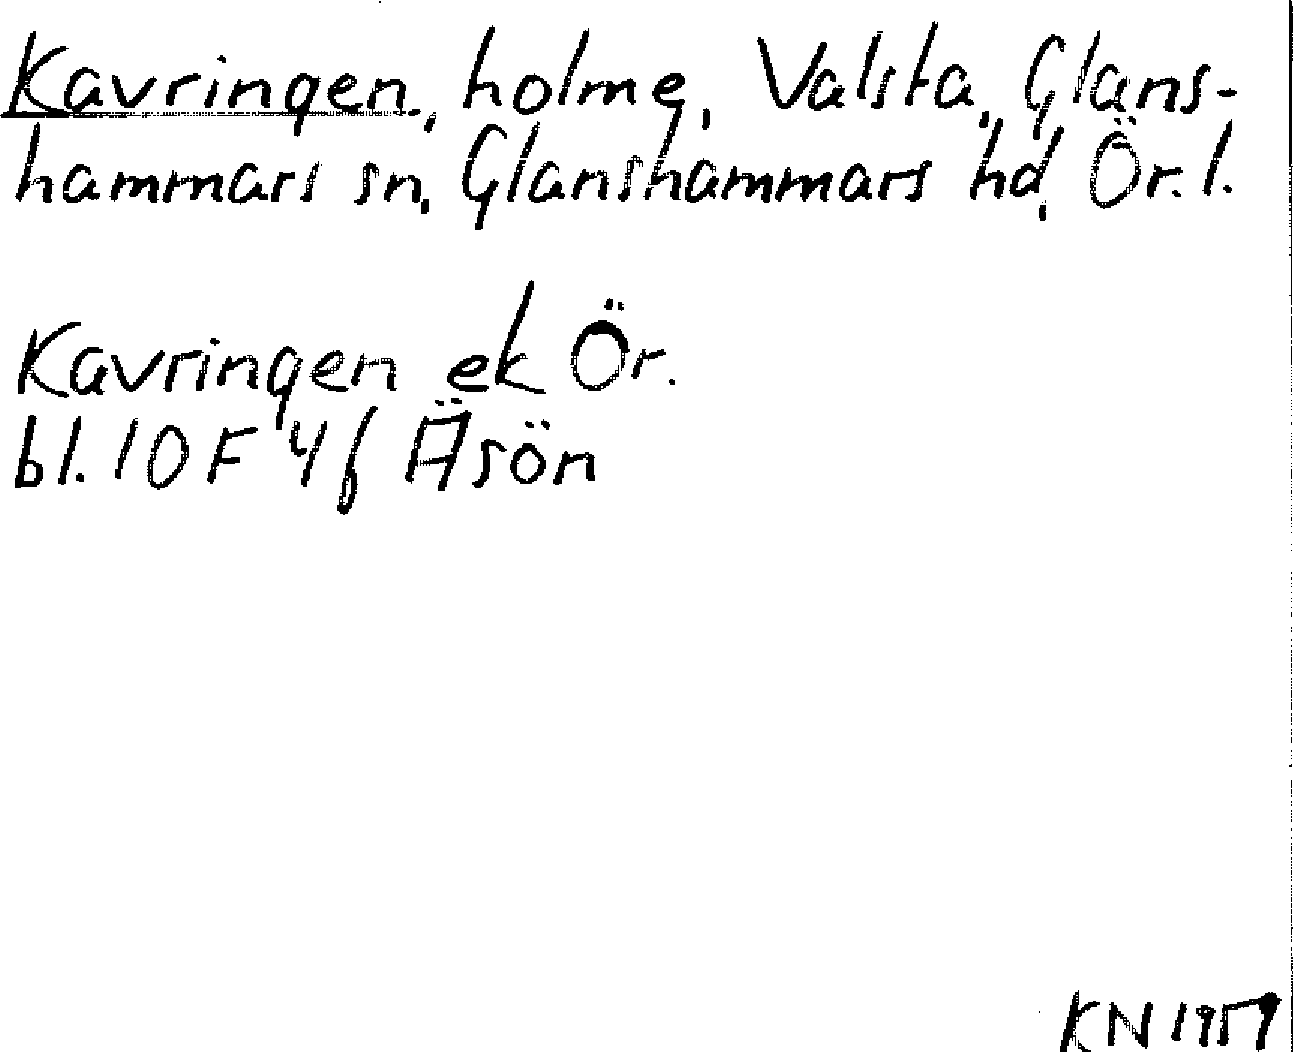 Kavringen, holme, Valsta, Glans-
hammars sn, Glanshammars hd, Ör. l.
Kavringen ek Ör.
bl. 10 F 4 f Äsön
KN 1957